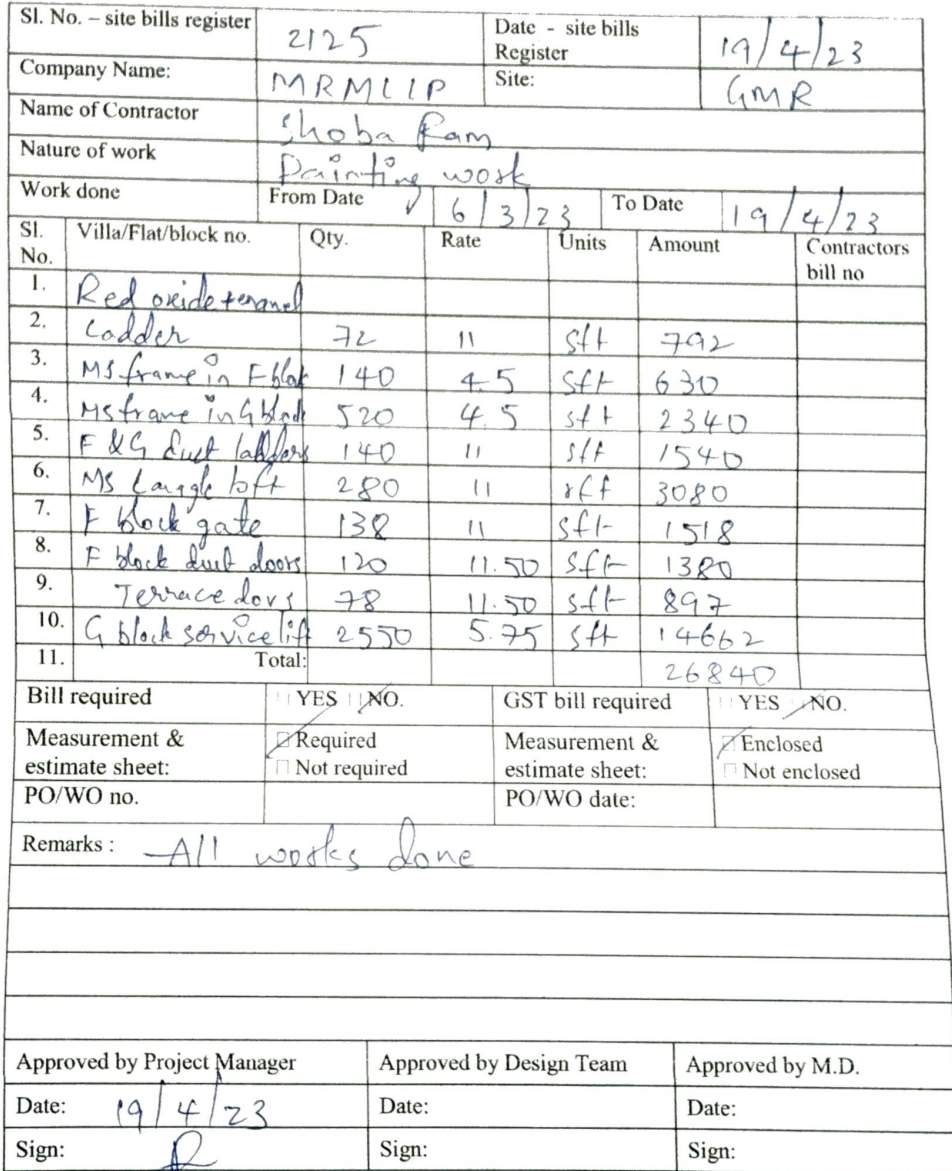 Sl. No. – site bills register 2125 Date - site bills Register 19/4/23
Company Name: MRMLLP Site: GMR
Name of Contractor Shoba Ram
Nature of work Painting work
Work done From Date 6/3/23 To Date 19/4/23
Sl. No. Villa/Flat/block no. Qty. Rate Units Amount Contractors bill no
1. Red oxide + enamel
2. Ladder 72 11 sft 792
3. MS frame in F blok 140 4.5 sft 630
4. MS frame in G block 520 4.5 sft 2340
5. F & G duct ladders 140 11 sft 1540
6. MS loft 280 11 rft 3080
7. F block gate 138 11 sft 1518
8. F block duct doors 120 11.50 sft 1380
9. Terrace dors 78 11.50 sft 897
10. G block service lift 2550 5.75 sft 14662
11. Total: 26840
Bill required YES NO. GST bill required YES NO.
Measurement & estimate sheet: Required Measurement & estimate sheet: Enclosed
Not required Not enclosed
PO/WO no. PO/WO date:
Remarks : All works done
Approved by Project Manager Approved by Design Team Approved by M.D.
Date: 19/4/23 Date: Date:
Sign: Sign: Sign: